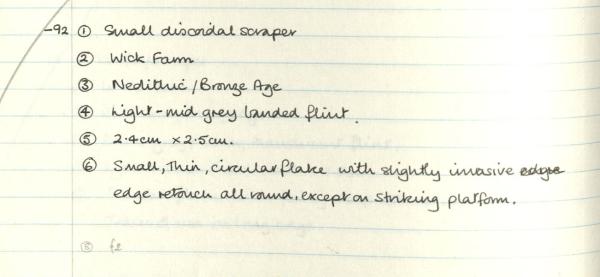 -92 ① Small discoidal scraper
② Wick Farm
③ Neolithic / Bronze Age
④ Light-mid grey banded flint.
⑤ 2.4cm x 2.5cm.
⑥ Small, Thin, circular flake with slightly invasive edge
edge retouch all round, except on striking platform.
⑧ f2